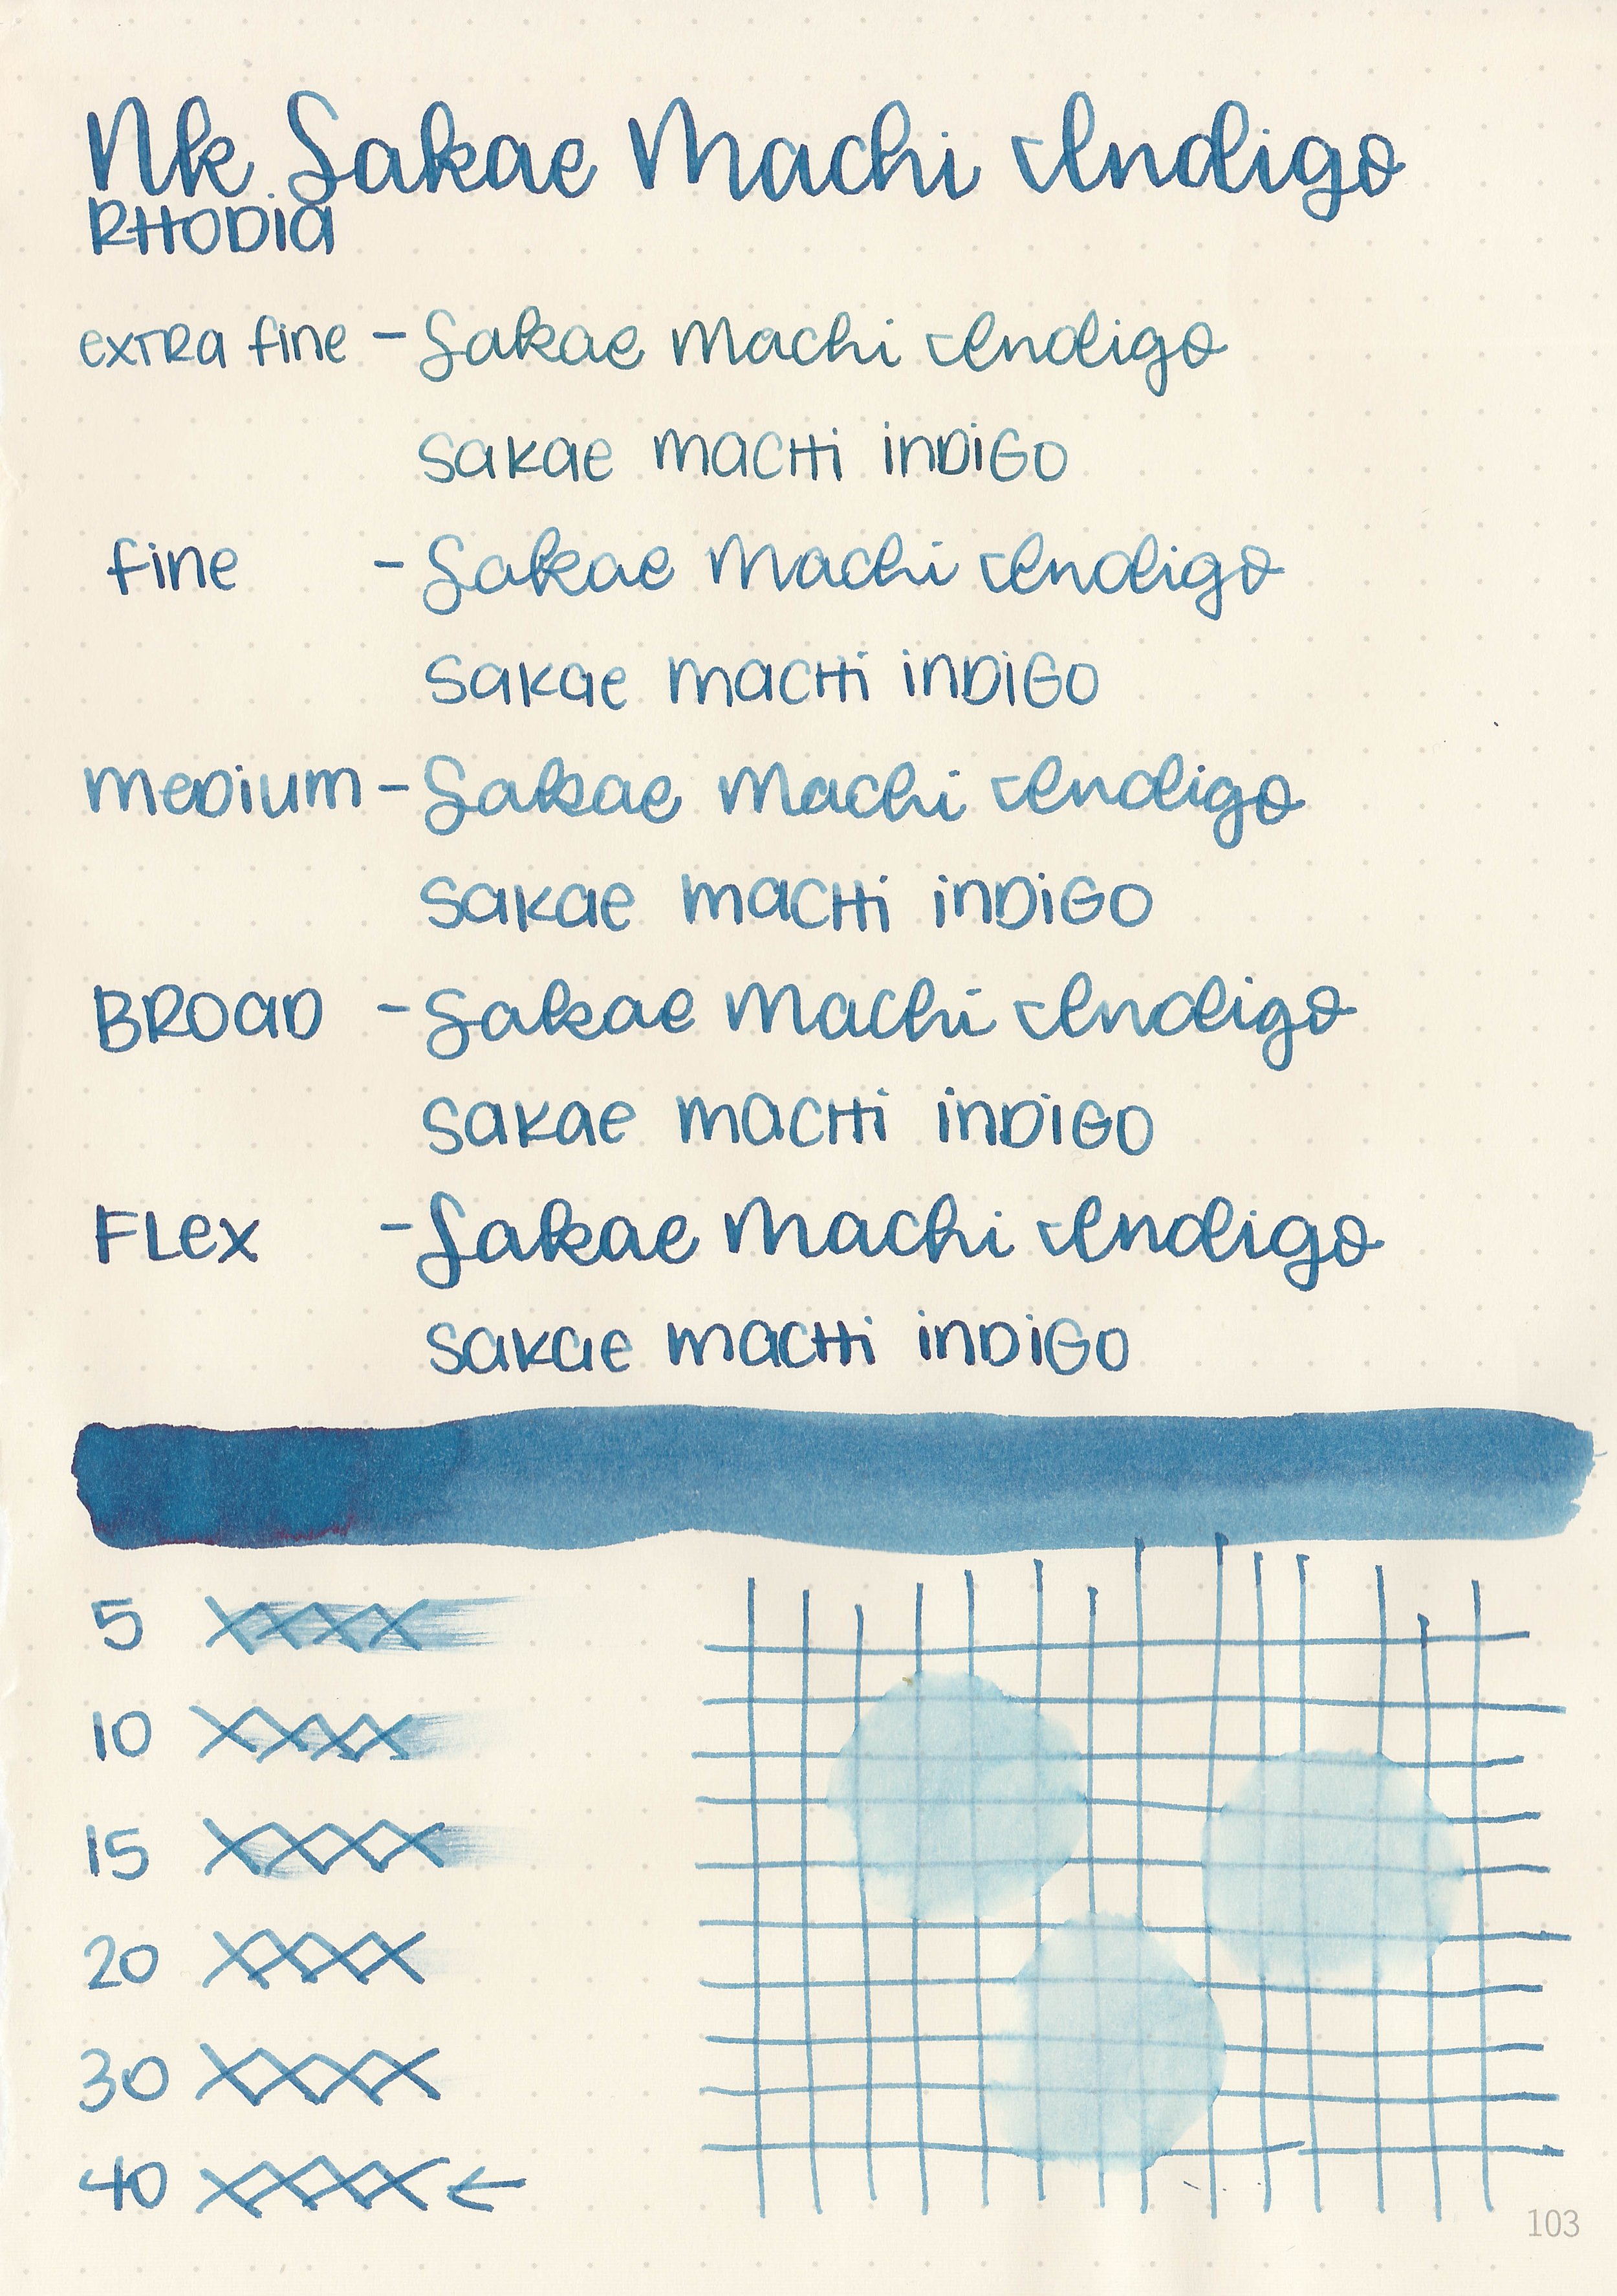 Nk Sakae Machi Indigo
RHODIA
extra fine - Sakae Machi Indigo
Sakae Machi Indigo
fine - Sakae Machi Indigo
Sakae Machi Indigo
Medium - Sakae Machi Indigo
Sakae Machi Indigo
BROAD - Sakae Machi Indigo
Sakae Machi Indigo
FLex - Sakae Machi Indigo
Sakae Machi Indigo
5 XXXX
10 XXXX
15 XXXX
20 XXXX
30 XXXX
40 XXXX ←
103